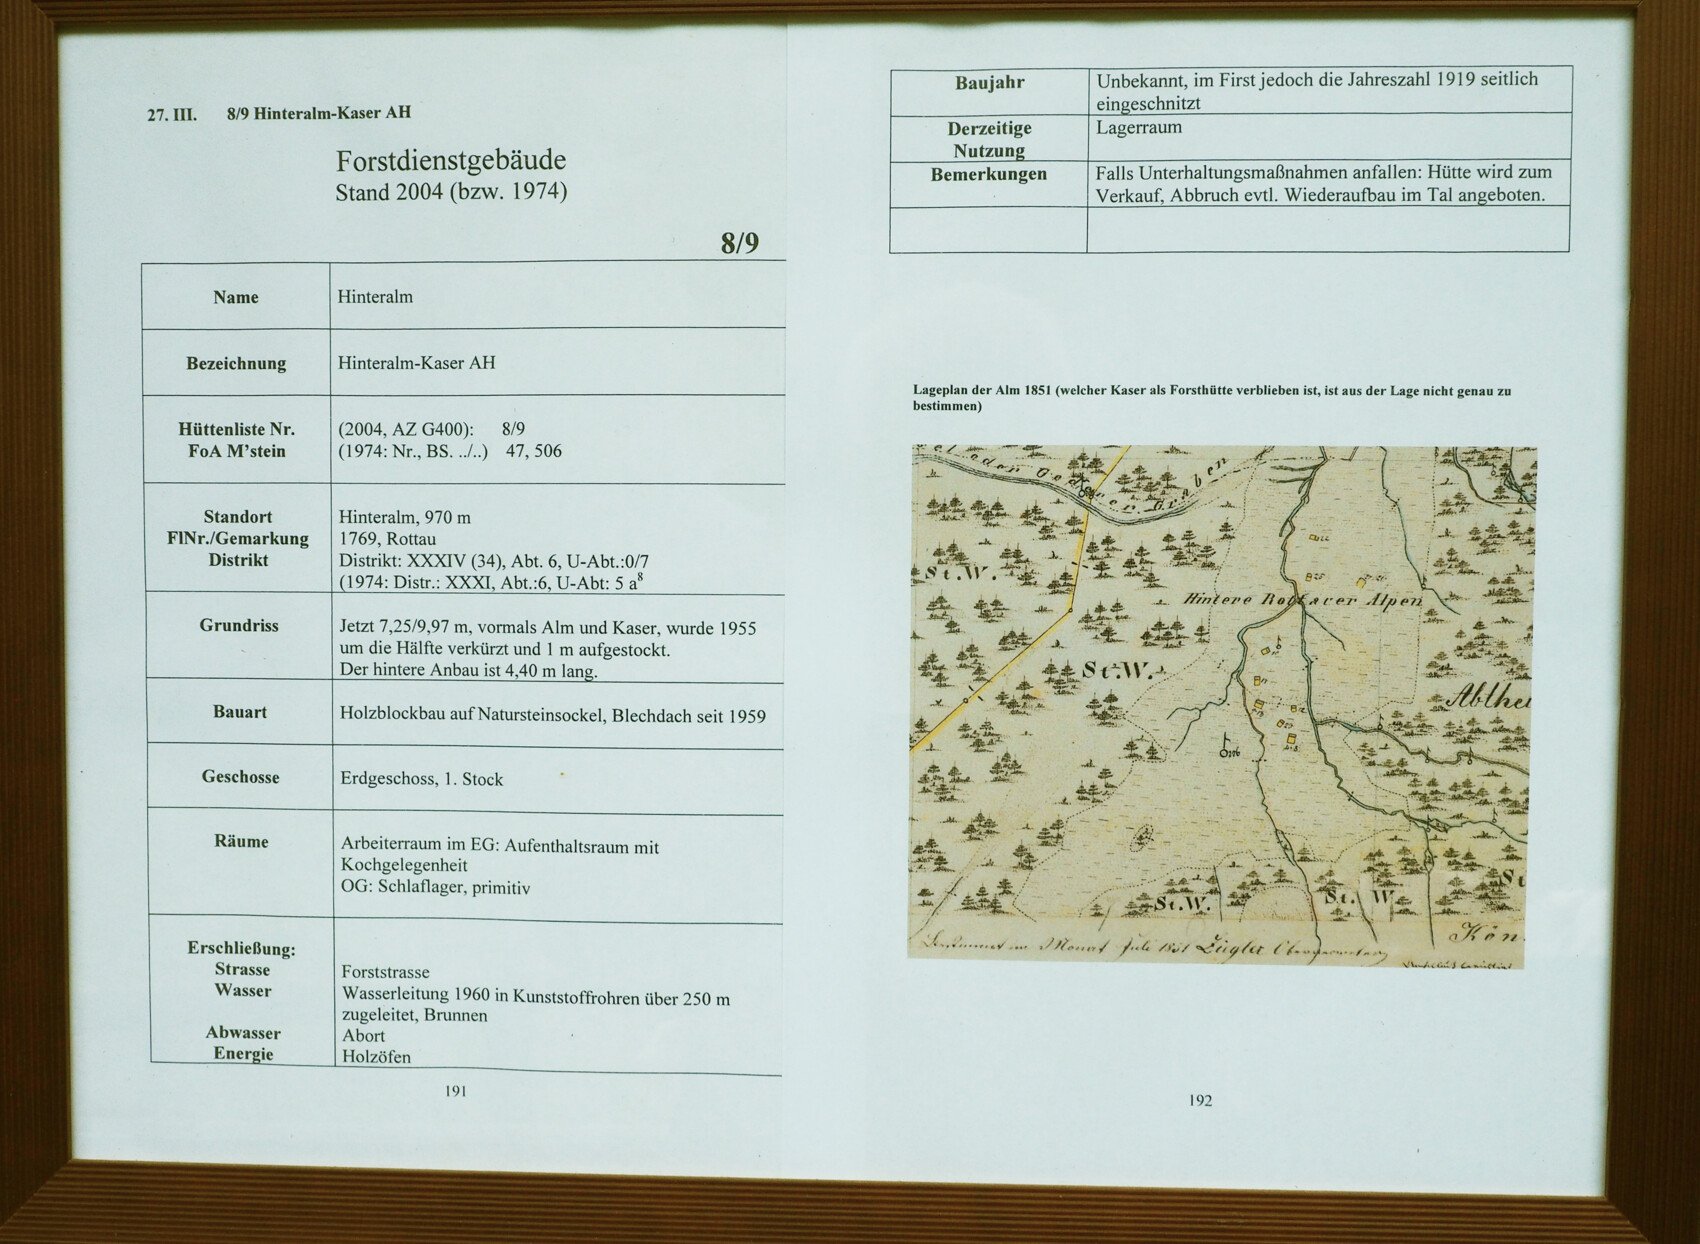 27. III. 8/9 Hinteralm-Kaser AH
Forstdienstgebäude
Stand 2004 (bzw. 1974)
8/9
Name Hinteralm
Bezeichnung Hinteralm-Kaser AH
Hüttenliste Nr. (2004, AZ G400): 8/9
FoA M'stein (1974: Nr., BS. ../..) 47, 506
Standort Hinteralm, 970 m
FlNr./Gemarkung 1769, Rottau
Distrikt Distrikt: XXXIV (34), Abt. 6, U-Abt.:0/7
(1974: Distr.: XXXI, Abt.:6, U-Abt: 5 a8
Grundriss Jetzt 7,25/9,97 m, vormals Alm und Kaser, wurde 1955
um die Hälfte verkürzt und 1 m aufgestockt.
Der hintere Anbau ist 4,40 m lang.
Bauart Holzblockbau auf Natursteinsockel, Blechdach seit 1959
Geschosse Erdgeschoss, 1. Stock
Räume Arbeiterraum im EG: Aufenthaltsraum mit
Kochgelegenheit
OG: Schlaflager, primitiv
Erschließung:
Strasse Forststrasse
Wasser Wasserleitung 1960 in Kunststoffrohren über 250 m
zugeleitet, Brunnen
Abwasser Abort
Energie Holzöfen
191
Baujahr Unbekannt, im First jedoch die Jahreszahl 1919 seitlich
eingeschnitzt
Derzeitige Lagerraum
Nutzung
Bemerkungen Falls Unterhaltungsmaßnahmen anfallen: Hütte wird zum
Verkauf, Abbruch evtl. Wiederaufbau im Tal angeboten.
Lageplan der Alm 1851 (welcher Kaser als Forsthütte verblieben ist, ist aus der Lage nicht genau zu
bestimmen)
Graben
St.W.
Hintere Rottauer Alpen
St.W.
Abthei
St.W.
St. W
St
Kön
Monat Juli 1851
192